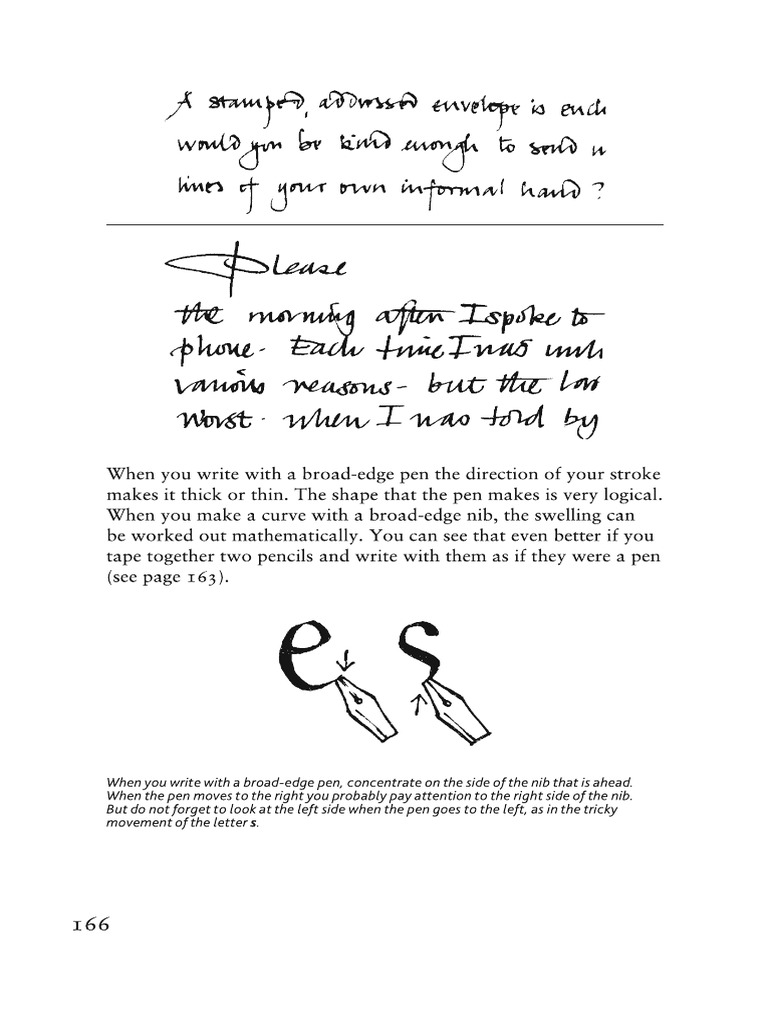 A stamped, addressed envelope is encl
would you be kind enough to send u
lines of your own informal hand?
Please
the morning after I spoke to
phone. Each time I was
various reasons - but the
worst. when I was told by
When you write with a broad-edge pen the direction of your stroke
makes it thick or thin. The shape that the pen makes is very logical.
When you make a curve with a broad-edge nib, the swelling can
be worked out mathematically. You can see that even better if you
tape together two pencils and write with them as if they were a pen
(see page 163).
e s
When you write with a broad-edge pen, concentrate on the side of the nib that is ahead.
When the pen moves to the right you probably pay attention to the right side of the nib.
But do not forget to look at the left side when the pen goes to the left, as in the tricky
movement of the letter s.
166